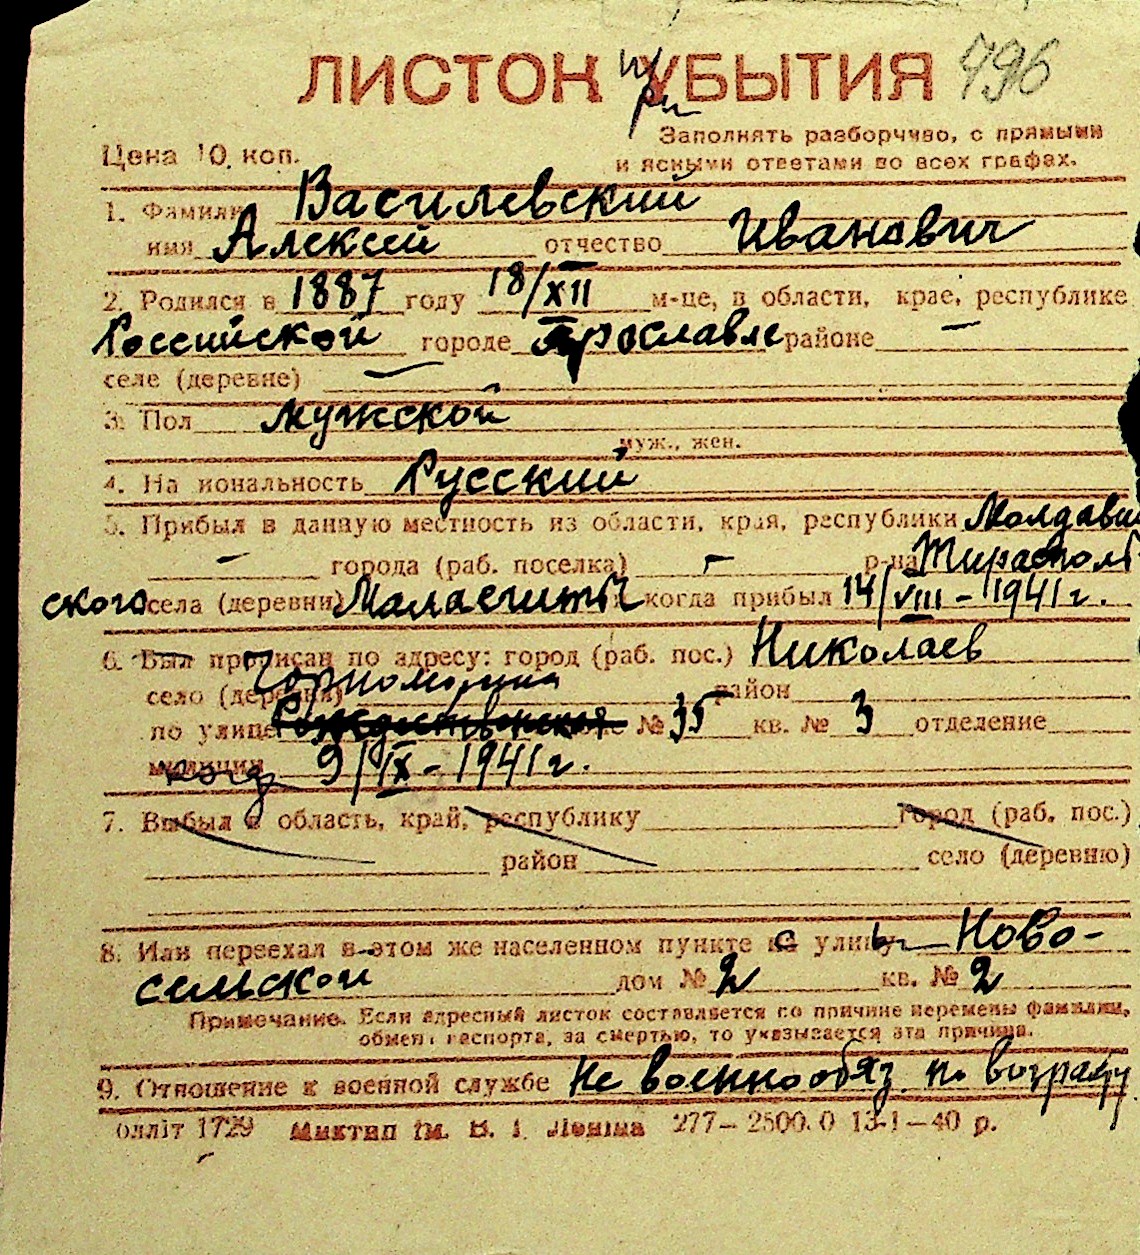 ЛИСТОК УБЫТИЯ 496
при
Заполнять разборчиво, с прямыми
Цена 10 коп. и ясными ответами во всех графах.
1. Фамилия Василевский
имя Алексей отчество Иванович
2. Родился в 1887 году 18/XII м-це, в области, крае, республике
Российской городе Ярославле районе —
селе (деревне) —
3. Пол мужской
муж., жен.
4. Национальность Русский
5. Прибыл в данную местность из области, края, республики Молдавск
— города (раб. поселка) — р-на Тираспол
ского села (деревни) когда прибыл 14/VIII - 1941 г.
6. Был прописан по адресу: город (раб. пос.) Николаев
село (деревня) район
по улице № 35 кв. № 3 отделение
милиции 9/IX - 1941 г.
7. Выбыл в область, край, республику город (раб. пос.)
район село (деревню)
8. Или переехал в этом же населенном пункте с улицы Ново-
сельской дом № 2 кв. № 2
Примечание. Если адресный листок составляется по причине перемены фамилии,
обмена паспорта, за смертью, то указывается эта причина.
9. Отношение к военной службе Не военнообяз. по возрасту.
олліт 1729 Миктип ім. В. І. Леніна 277—2500.0 13-1—40 р.